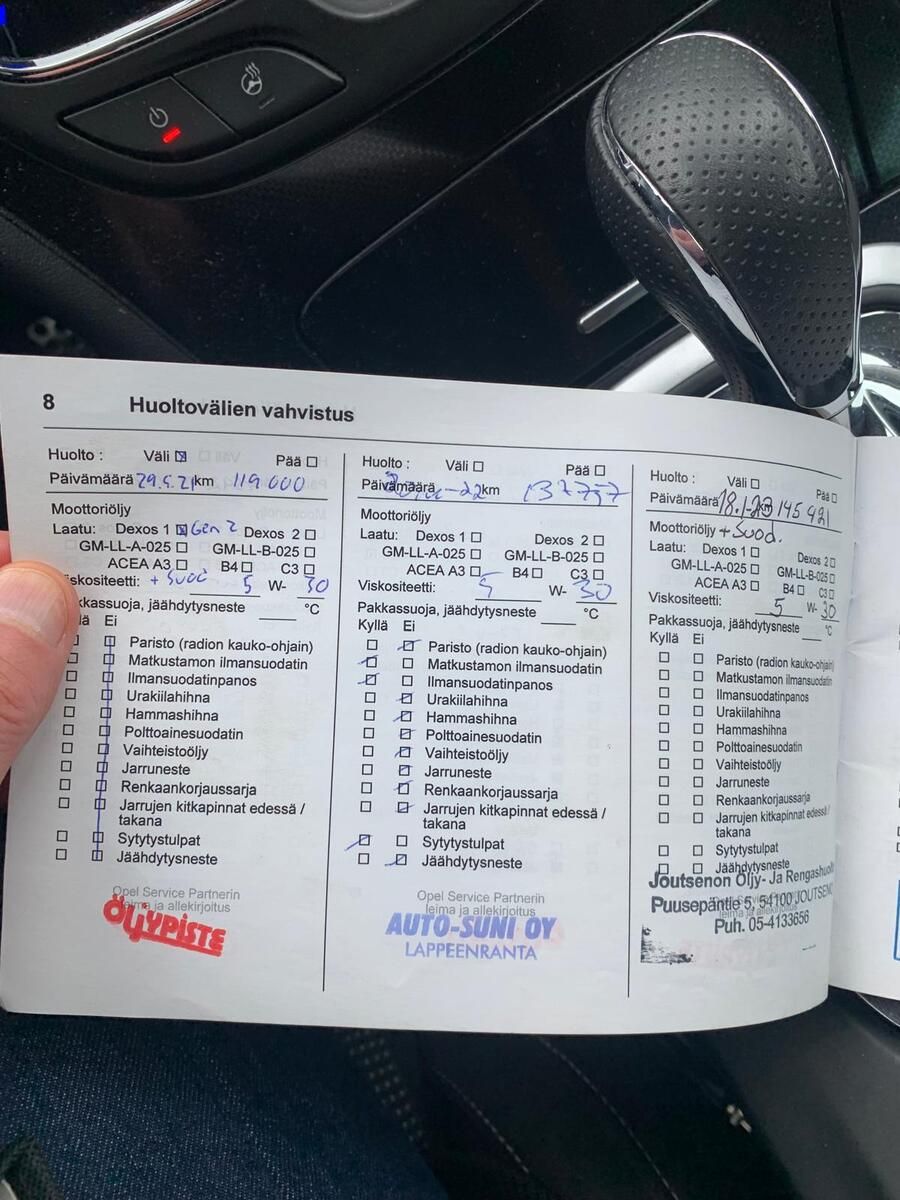 8 Huoltovälien vahvistus
Huolto : Väli ☒ Pää ☐
Päivämäärä 29.5.21 km 119 000
Moottoriöljy
Laatu: Dexos 1 ☒ Gen 2 Dexos 2 ☐
GM-LL-A-025 ☐ GM-LL-B-025 ☐
ACEA A3 ☐ B4 ☐ C3 ☐
Viskositeetti: + Suod 5 W- 30
kkassuoja, jäähdytysneste °C
lä Ei
Paristo (radion kauko-ohjain)
Matkustamon ilmansuodatin
Ilmansuodatinpanos
Urakiilahihna
Hammashihna
Polttoainesuodatin
Vaihteistoöljy
Jarruneste
Renkaankorjaussarja
Jarrujen kitkapinnat edessä /
takana
Sytytystulpat
Jäähdytysneste
Opel Service Partnerin
leima ja allekirjoitus
ÖLJYPISTE
Huolto : Väli ☐ Pää ☐
Päivämäärä -22 km 137757
Moottoriöljy
Laatu: Dexos 1 ☐ Dexos 2 ☐
GM-LL-A-025 ☐ GM-LL-B-025 ☐
ACEA A3 ☐ B4 ☐ C3 ☐
Viskositeetti: 5 W- 30
Pakkassuoja, jäähdytysneste °C
Kyllä Ei
Paristo (radion kauko-ohjain)
Matkustamon ilmansuodatin
Ilmansuodatinpanos
Urakiilahihna
Hammashihna
Polttoainesuodatin
Vaihteistoöljy
Jarruneste
Renkaankorjaussarja
Jarrujen kitkapinnat edessä /
takana
Sytytystulpat
Jäähdytysneste
Opel Service Partnerin
leima ja allekirjoitus
AUTO-SUNI OY
LAPPEENRANTA
Huolto : Väli ☐ Pää ☐
Päivämäärä 18.1-23 km 145 421
Moottoriöljy + Suod.
Laatu: Dexos 1 ☐ Dexos 2 ☐
GM-LL-A-025 ☐ GM-LL-B-025 ☐
ACEA A3 ☐ B4 ☐ C3 ☐
Viskositeetti: 5 W- 30
Pakkassuoja, jäähdytysneste °C
Kyllä Ei
Paristo (radion kauko-ohjain)
Matkustamon ilmansuodatin
Ilmansuodatinpanos
Urakiilahihna
Hammashihna
Polttoainesuodatin
Vaihteistoöljy
Jarruneste
Renkaankorjaussarja
Jarrujen kitkapinnat edessä /
takana
Sytytystulpat
Jäähdytysneste
Joutsenon Öljy- Ja Rengashuolt
Puusepäntie 5, 54100 JOUTSENO
leima ja allekirjoitus
Puh. 05-4133656